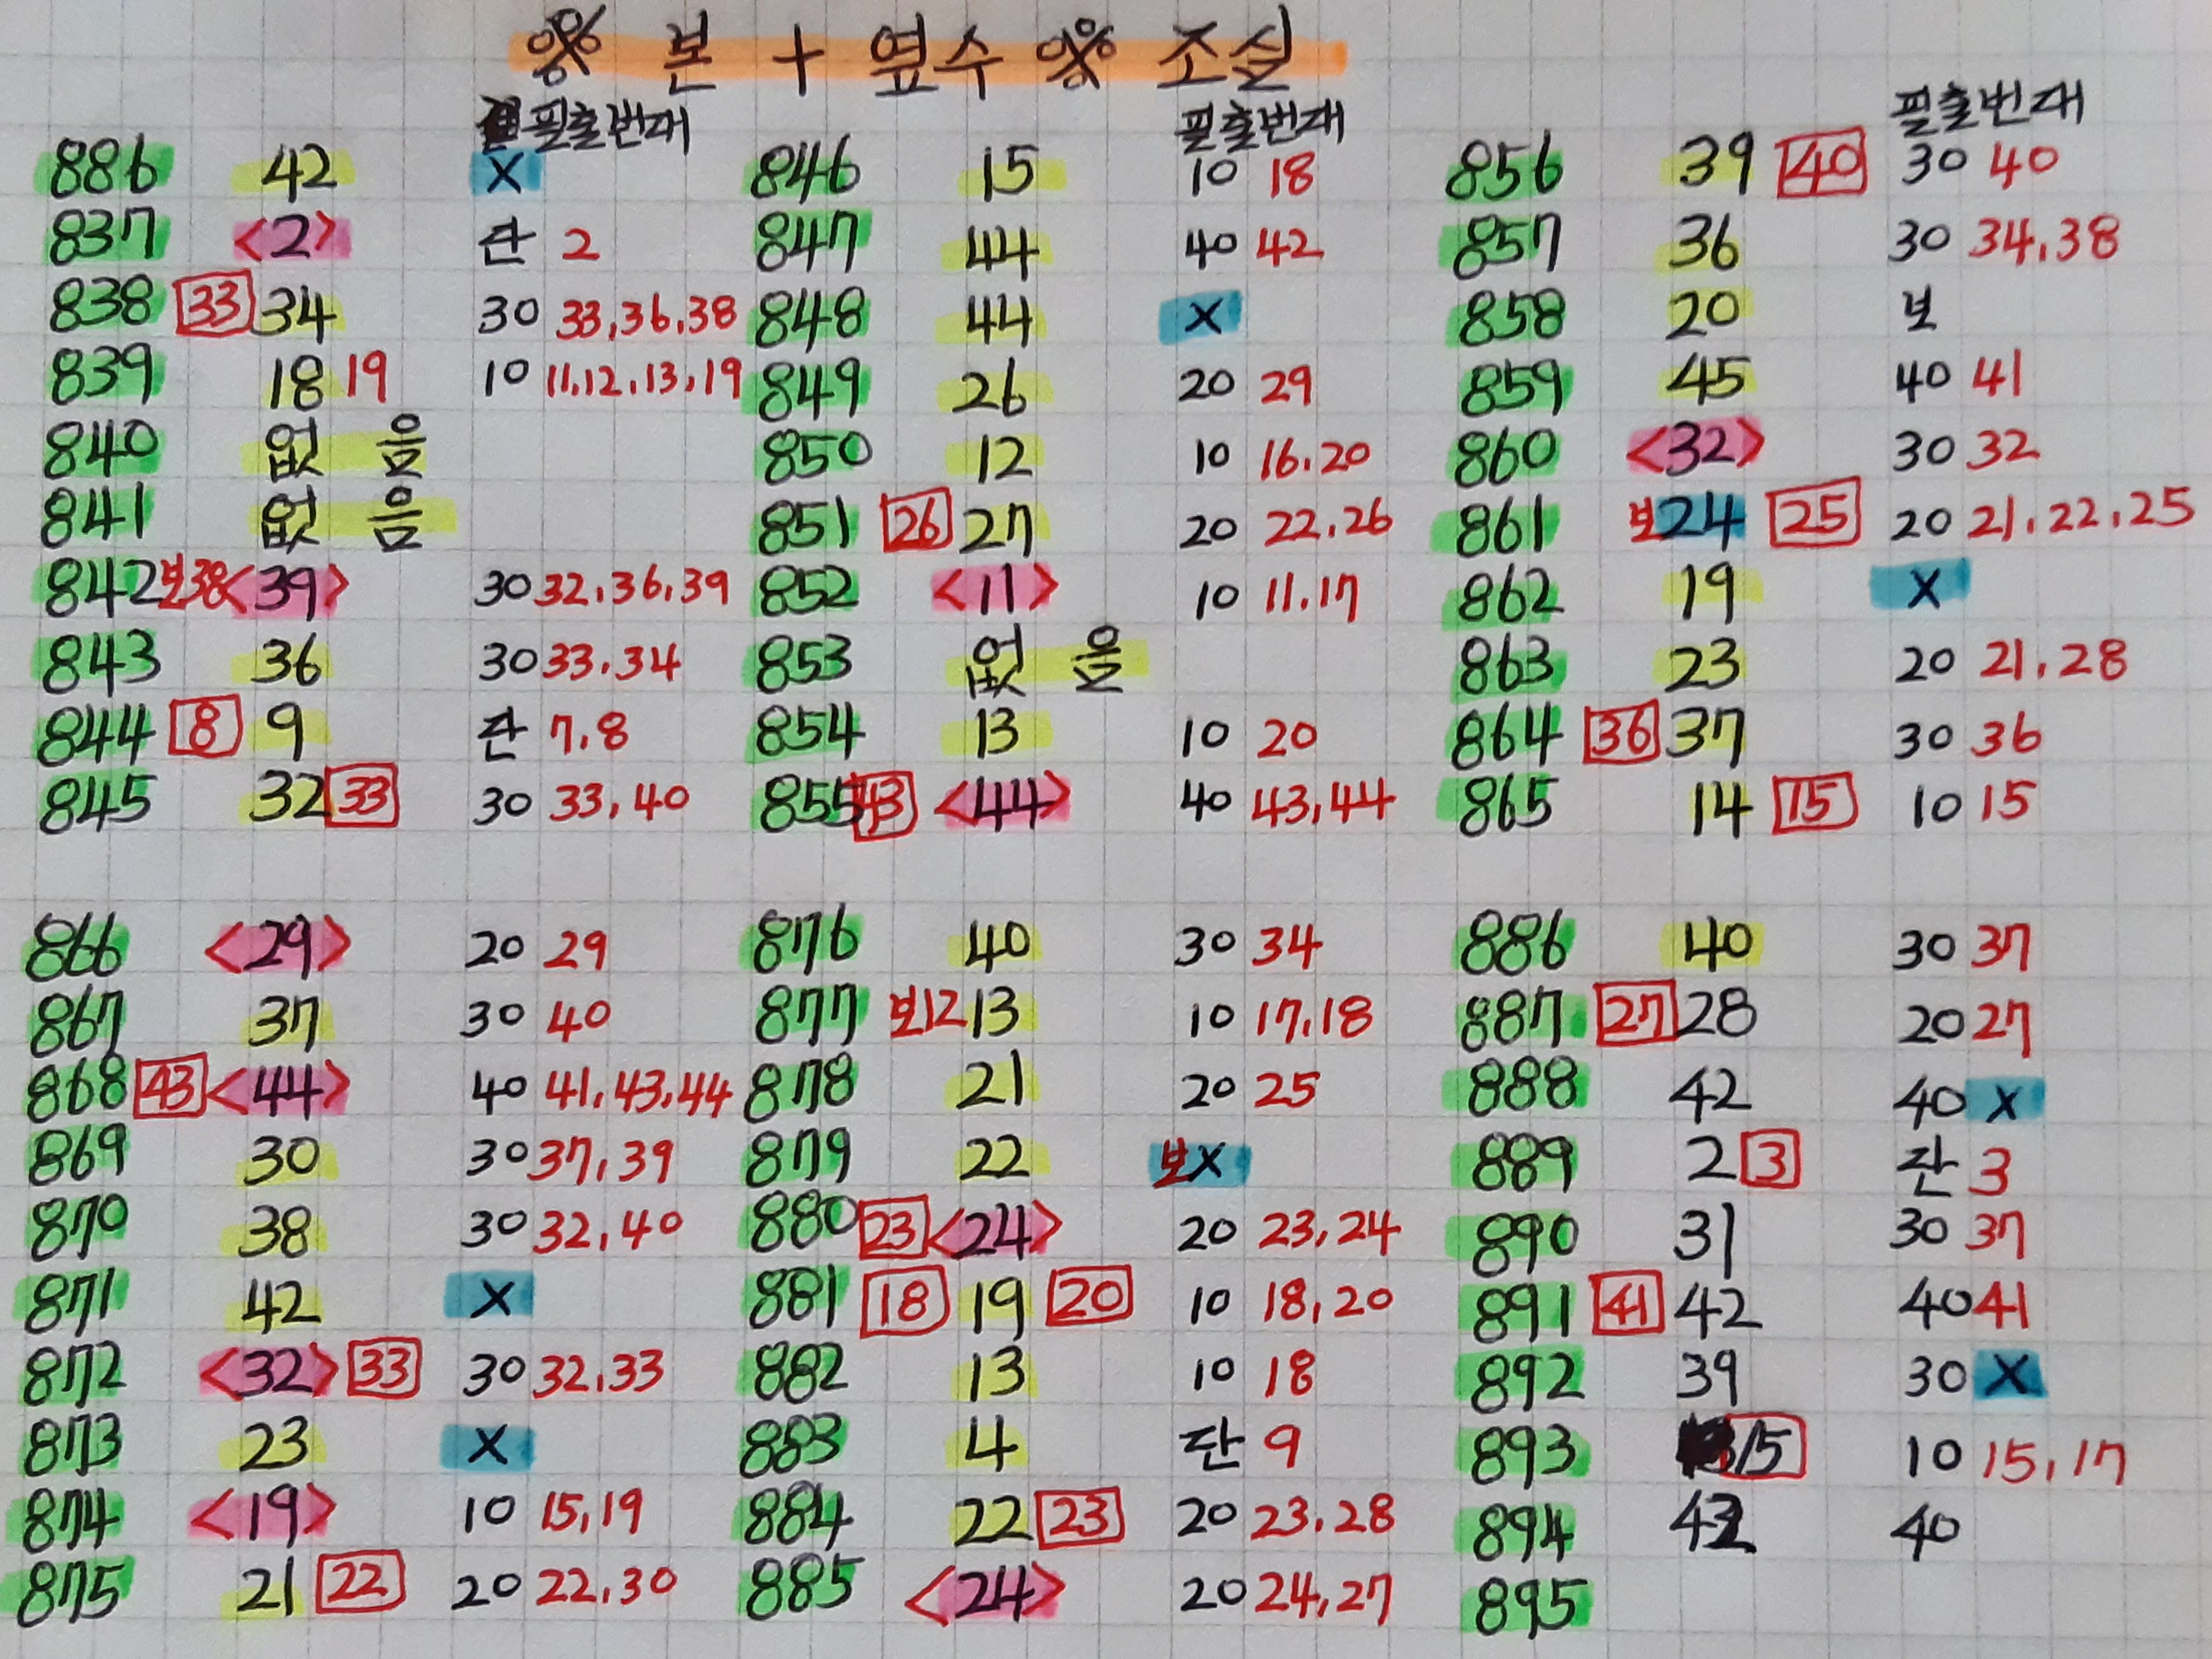 ※ 본 + 옆수 ※ 조실
필출번대 필출번대 필출번대
886 42 X 846 15 10 18 856 39 40 30 40
837 <2> 단 2 847 44 40 42 857 36 30 34,38
838 33 34 30 33,36,38 848 44 X 858 20 보
839 18 19 10 11,12,13,19 849 26 20 29 859 45 40 41
840 없음 850 12 10 16,20 860 <32> 30 32
841 없음 851 26 27 20 22,26 861 보24 25 20 21,22,25
842 보38 <39> 30 32,36,39 852 <11> 10 11,17 862 19 X
843 36 30 33,34 853 없음 863 23 20 21,28
844 8 9 단 7,8 854 13 10 20 864 36 37 30 36
845 32 33 30 33,40 855 43 <44> 40 43,44 865 14 15 10 15
866 <29> 20 29 876 40 30 34 886 40 30 37
867 37 30 40 877 보12 13 10 17,18 887 27 28 20 27
868 43 <44> 40 41,43,44 878 21 20 25 888 42 40 X
869 30 30 37,39 879 22 보X 889 2 3 단 3
870 38 30 32,40 880 23 <24> 20 23,24 890 31 30 37
871 42 X 881 18 19 20 10 18,20 891 41 42 40 41
872 <32> 33 30 32,33 882 13 10 18 892 39 30 X
873 23 X 883 4 단 9 893 15 10 15,17
874 <19> 10 15,19 884 22 23 20 23,28 894 40
875 21 22 20 22,30 885 <24> 20 24,27 895